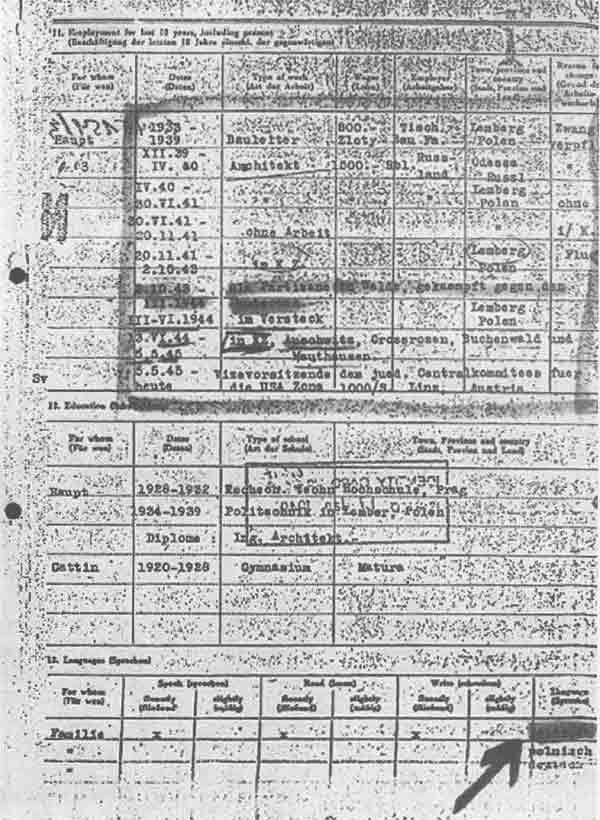 11. Employment for last 10 years, including present
(Beschäftigung der letzten 10 Jahre einschl. der gegenwärtigen)
For whom
(Für wen)
Dates
(Daten)
Type of work
(Art der Arbeit)
Wages
(Lohn)
Employer
(Arbeitgeber)
Town, province and
country
(Stadt, Provinz und
Land)
Haupt
1933 -
1939
Bauleiter
800.-
Zloty
Tisch.-
Bau.Fa.
Lemberg
Polen
Zwang
XII.39 -
IV. 40
Architekt
1500.-
Rbl.
Russ-
land
Odessa
Russl
IV.40 -
30.VI.41
" "
"
"
Lemberg
Polen
ohne
30.VI.41 -
20.11.41
ohne Arbeit
"
i/ K.
20.11.41 -
2.10.43
in K Z
Lemberg
Polen
Flu
als Partisane im Walde, gekaempft gegen den
III.1944
III-VI.1944
im Versteck
Lemberg
Polen
VI.44 -
5.5.45
in KZ, Auschwitz, Grossrosen, Buchenwald und
Mauthausen
5.5.45 -
heute
Vizevorsitzende dem jued. Centralkomitees fuer
die USA Zone
1000/S
Linz,
Austria
Sv
12. Education
For whom
(Für wen)
Dates
(Daten)
Type of school
(Art der Schule)
Town, Province and country
(Stadt, Provinz und Land)
Haupt
1928-1932
Techn Hochschule, Prag
1934-1939
Politechnik in Lember, Polen
Diplome :
Ing. Architekt.-
Gattin
1920-1928
Gymnasium
Matura
13. Languages (Sprachen)
For whom
(Für wen)
Speak (sprechen)
Read (lesen)
Write (schreiben)
Language
(Sprache)
fluently
(fließend)
slightly
(mäßig)
fluently
(fließend)
slightly
(mäßig)
fluently
(fließend)
slightly
(mäßig)
Familie
x
x
x
"
polnisch
"
deutsch